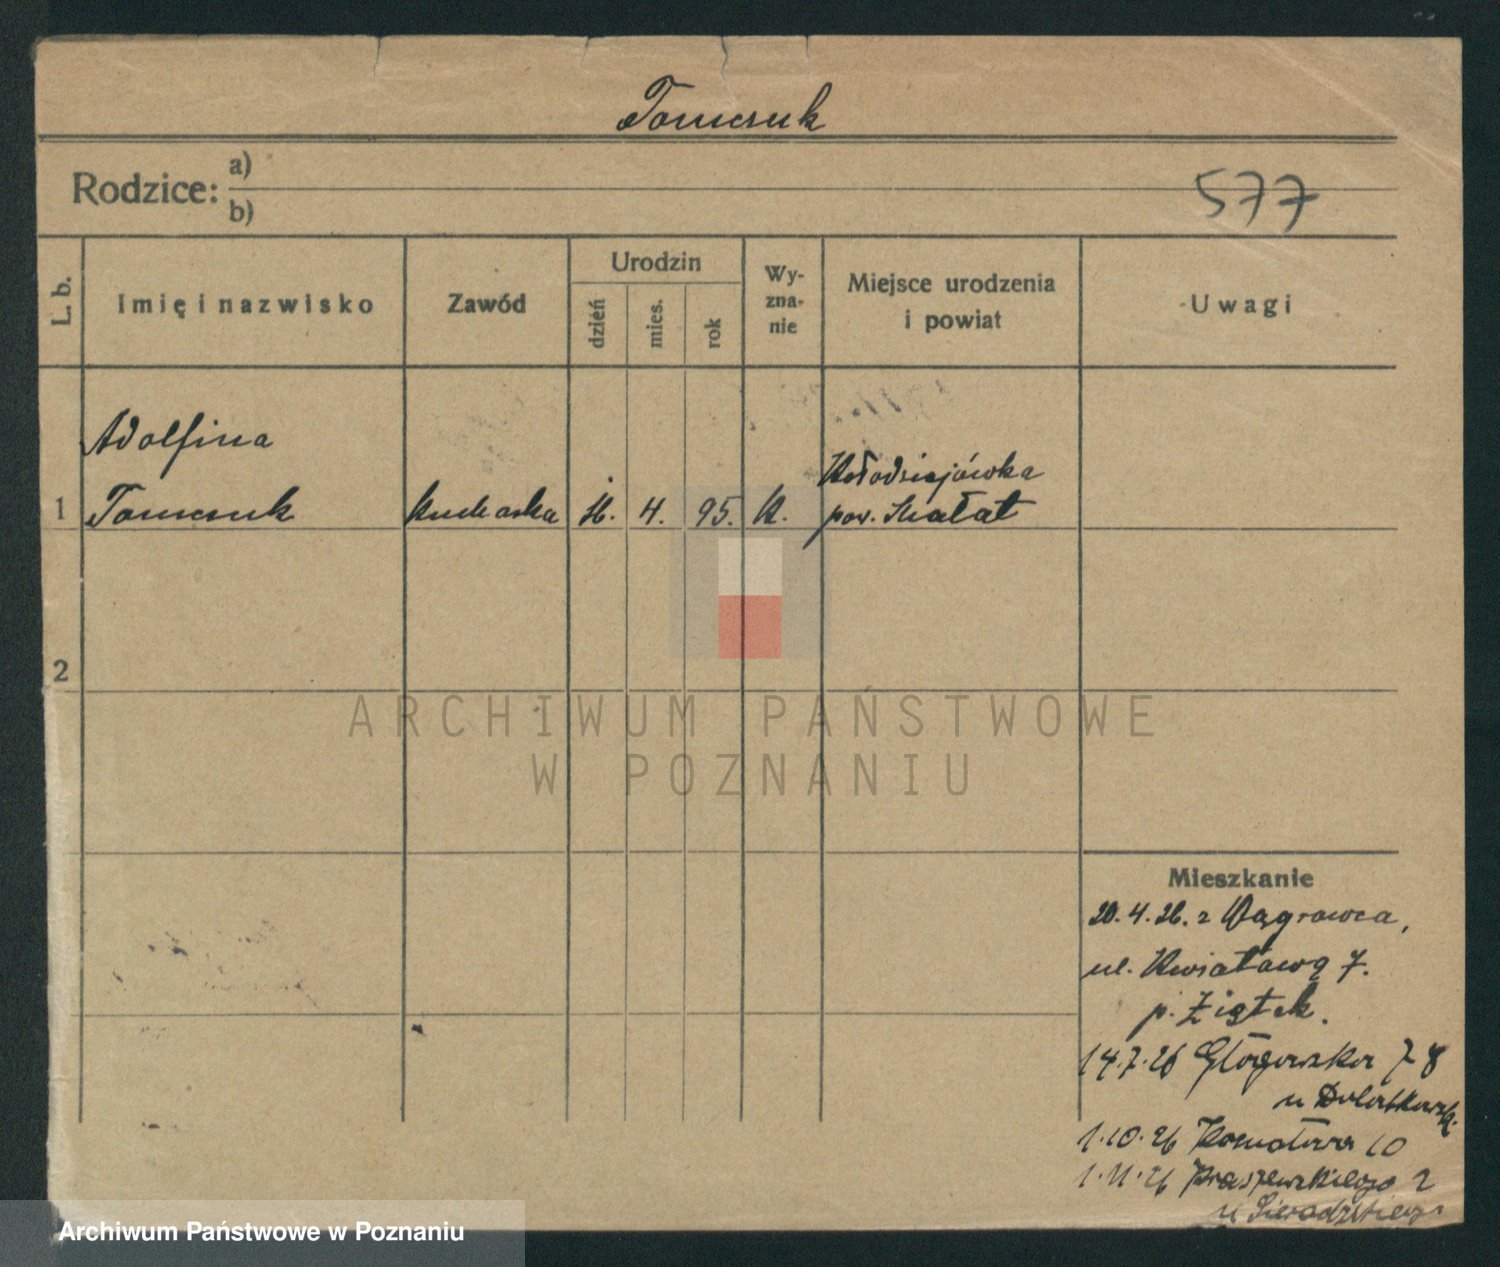 Tomczuk
Rodzice: a)
b)
577
L. b.
Imię i nazwisko
Zawód
Urodzin
dzień
mies.
rok
Wy-
zna-
nie
Miejsce urodzenia
i powiat
Uwagi
Adolfina
1 Tomczuk kucharka 4. 95. K.
Kołodziejówka
pow. Skałat
2
ARCHIWUM PAŃSTWOWE
W POZNANIU
Mieszkanie
20.4.26. z Wągrowca,
ul. Kwiatową 7.
p. Ziętek.
14.7.26 Głogowska 78
u
1.10.26 10
1.11.26 Kraszewskiego 2
u
Archiwum Państwowe w Poznaniu